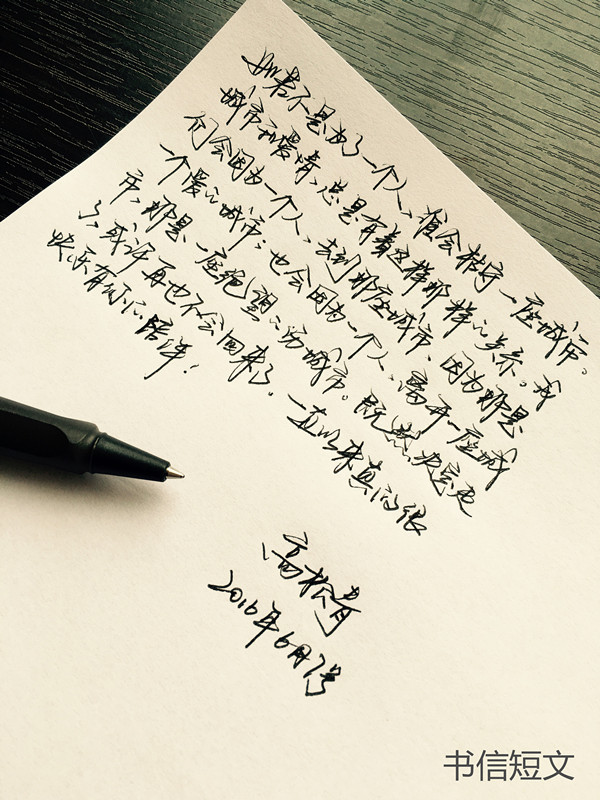 如若不是为了一个人、谁会枯守一座城市。
城市和爱情、总是有着这样那样的关系。我
们会因为一个人、去到那座城市、因为那是
一个爱的城市；也会因为一个人、离开一座城
市、那是一座绝望的伤城市。既然决定走
了、或许再也不会回来了。一直以来真的很
快乐有你的陪伴！
高松青
2016年6月7号
书信短文